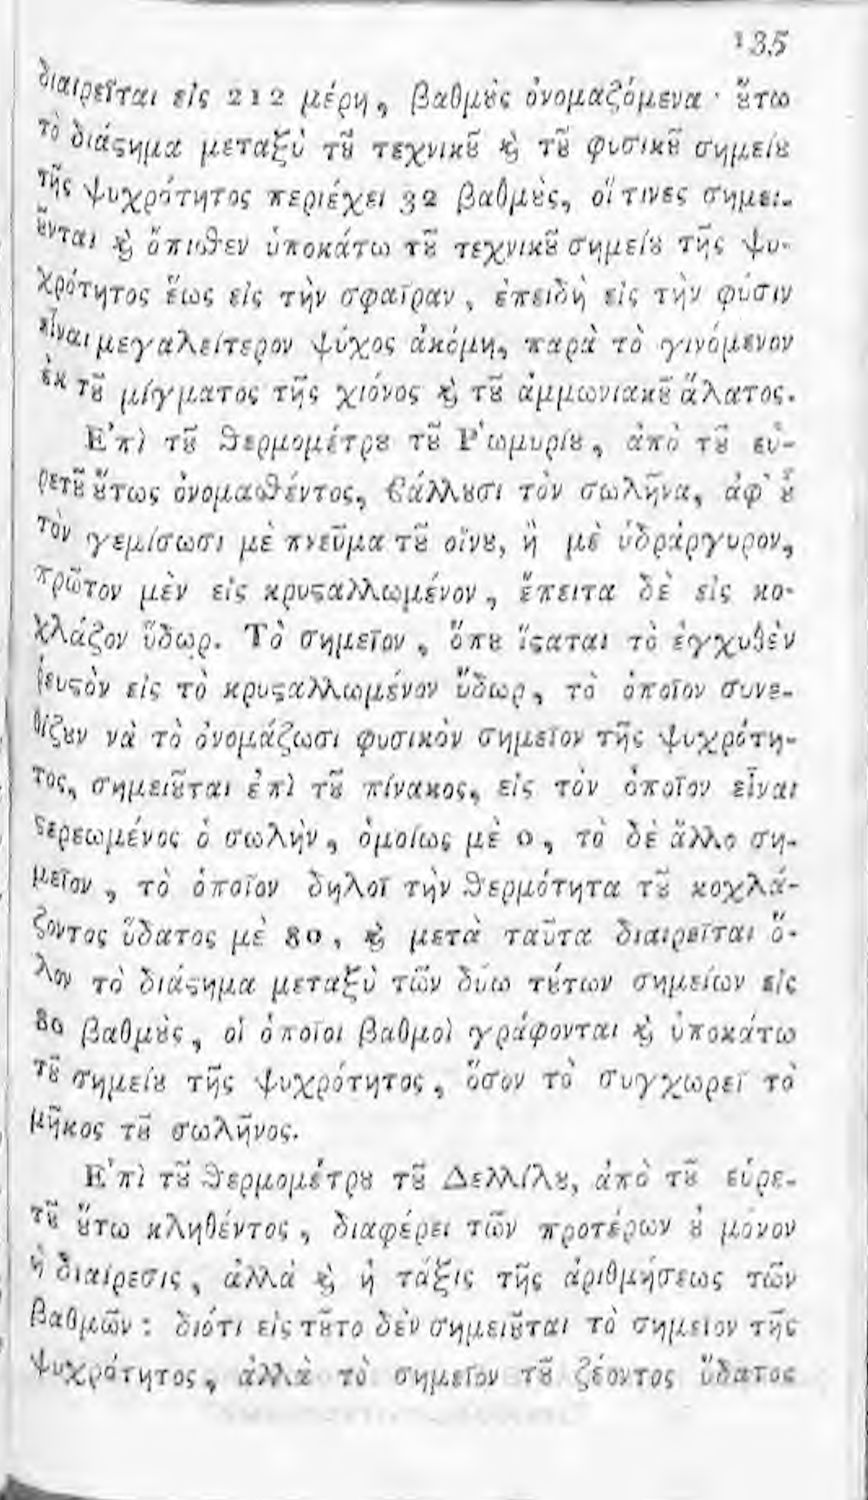 135
διαιρεῖται εἰς 212 μέρη, βαθμȣ̀ς ὀνομαζόμενα· ȣ̔́τω
τὸ διάϛημα μεταξὺ τȣ͂ τεχνικȣ͂ ϗ̀ τȣ͂ φυσικȣ͂ σημείȣ
τῆς ψυχρότητος περιέχει 32 βαθμȣ̀ς, οἵ τινες σημει-
ȣ͂νται ϗ̀ ὄπισθεν ὑποκάτω τȣ͂ τεχνικȣ͂ σημείȣ τῆς ψυ-
χρότητος ἕως εἰς τὴν σφαῖραν, ἐπειδὴ εἰς τὴν φύσιν
εἶναι μεγαλείτερον ψύχος ἀκόμη, παρὰ τὸ γινόμενον
ἐκ τȣ͂ μίγματος τῆς χιόνος ϗ̀ τȣ͂ ἀμμωνιακȣ͂ ἅλατος.
Ε᾿πὶ τȣ͂ θερμομέτρȣ τȣ͂ Ρ῾ωμυρίȣ, ἀπὸ τȣ͂ εὑ-
ρετȣ͂ ȣ̔́τως ὀνομασθέντος, ϐάλλȣσι τὸν σωλῆνα, ἀφ' ȣ̔͂
τὸν γεμίσωσι μὲ πνεῦμα τȣ͂ οἴνȣ, ἢ μὲ ὑδράργυρον,
πρῶτον μὲν εἰς κρυϛαλλωμένον, ἔπειτα δὲ εἰς κο-
χλάζον ὕδωρ. Τὸ σημεῖον, ὅπȣ ἵϛαται τὸ ἐγχυθὲν
ῥευϛὸν εἰς τὸ κρυϛαλλωμένον ὕδωρ, τὸ ὁποῖον συνε-
θίζȣν νὰ τὸ ὀνομάζωσι φυσικὸν σημεῖον τῆς ψυχρότη-
τος, σημειȣ͂ται ἐπὶ τȣ͂ πίνακος, εἰς τὸν ὁποῖον εἶναι
ϛερεωμένος ὁ σωλὴν, ὁμοίως μὲ 0, τὸ δὲ ἄλλο ση-
μεῖον, τὸ ὁποῖον δηλοῖ τὴν θερμότητα τȣ͂ κοχλά-
ζοντος ὕδατος μὲ 80, ϗ̀ μετὰ ταῦτα διαιρεῖται ὅ-
λον τὸ διάϛημα μεταξὺ τῶν δύω τȣ́των σημείων εἰς
80 βαθμȣ̀ς, οἱ ὁποῖοι βαθμοὶ γράφονται ϗ̀ ὑποκάτω
τȣ͂ σημείȣ τῆς ψυχρότητος, ὅσον τὸ συγχωρεῖ τὸ
μῆκος τȣ͂ σωλῆνος.
Ε᾿πὶ τȣ͂ θερμομέτρȣ τȣ͂ Δελλίλȣ, ἀπὸ τȣ͂ εὑρε-
τȣ͂ ȣ̔́τω κληθέντος, διαφέρει τῶν προτέρων ȣ̓ μόνον
ἡ διαίρεσις, ἀλλὰ ϗ̀ ἡ τάξις τῆς ἀριθμήσεως τῶν
βαθμῶν: διότι εἰς τȣ͂το δὲν σημειȣ͂ται τὸ σημεῖον τῆς
ψυχρότητος, ἀλλὰ τὸ σημεῖον τȣ͂ ζέοντος ὕδατος